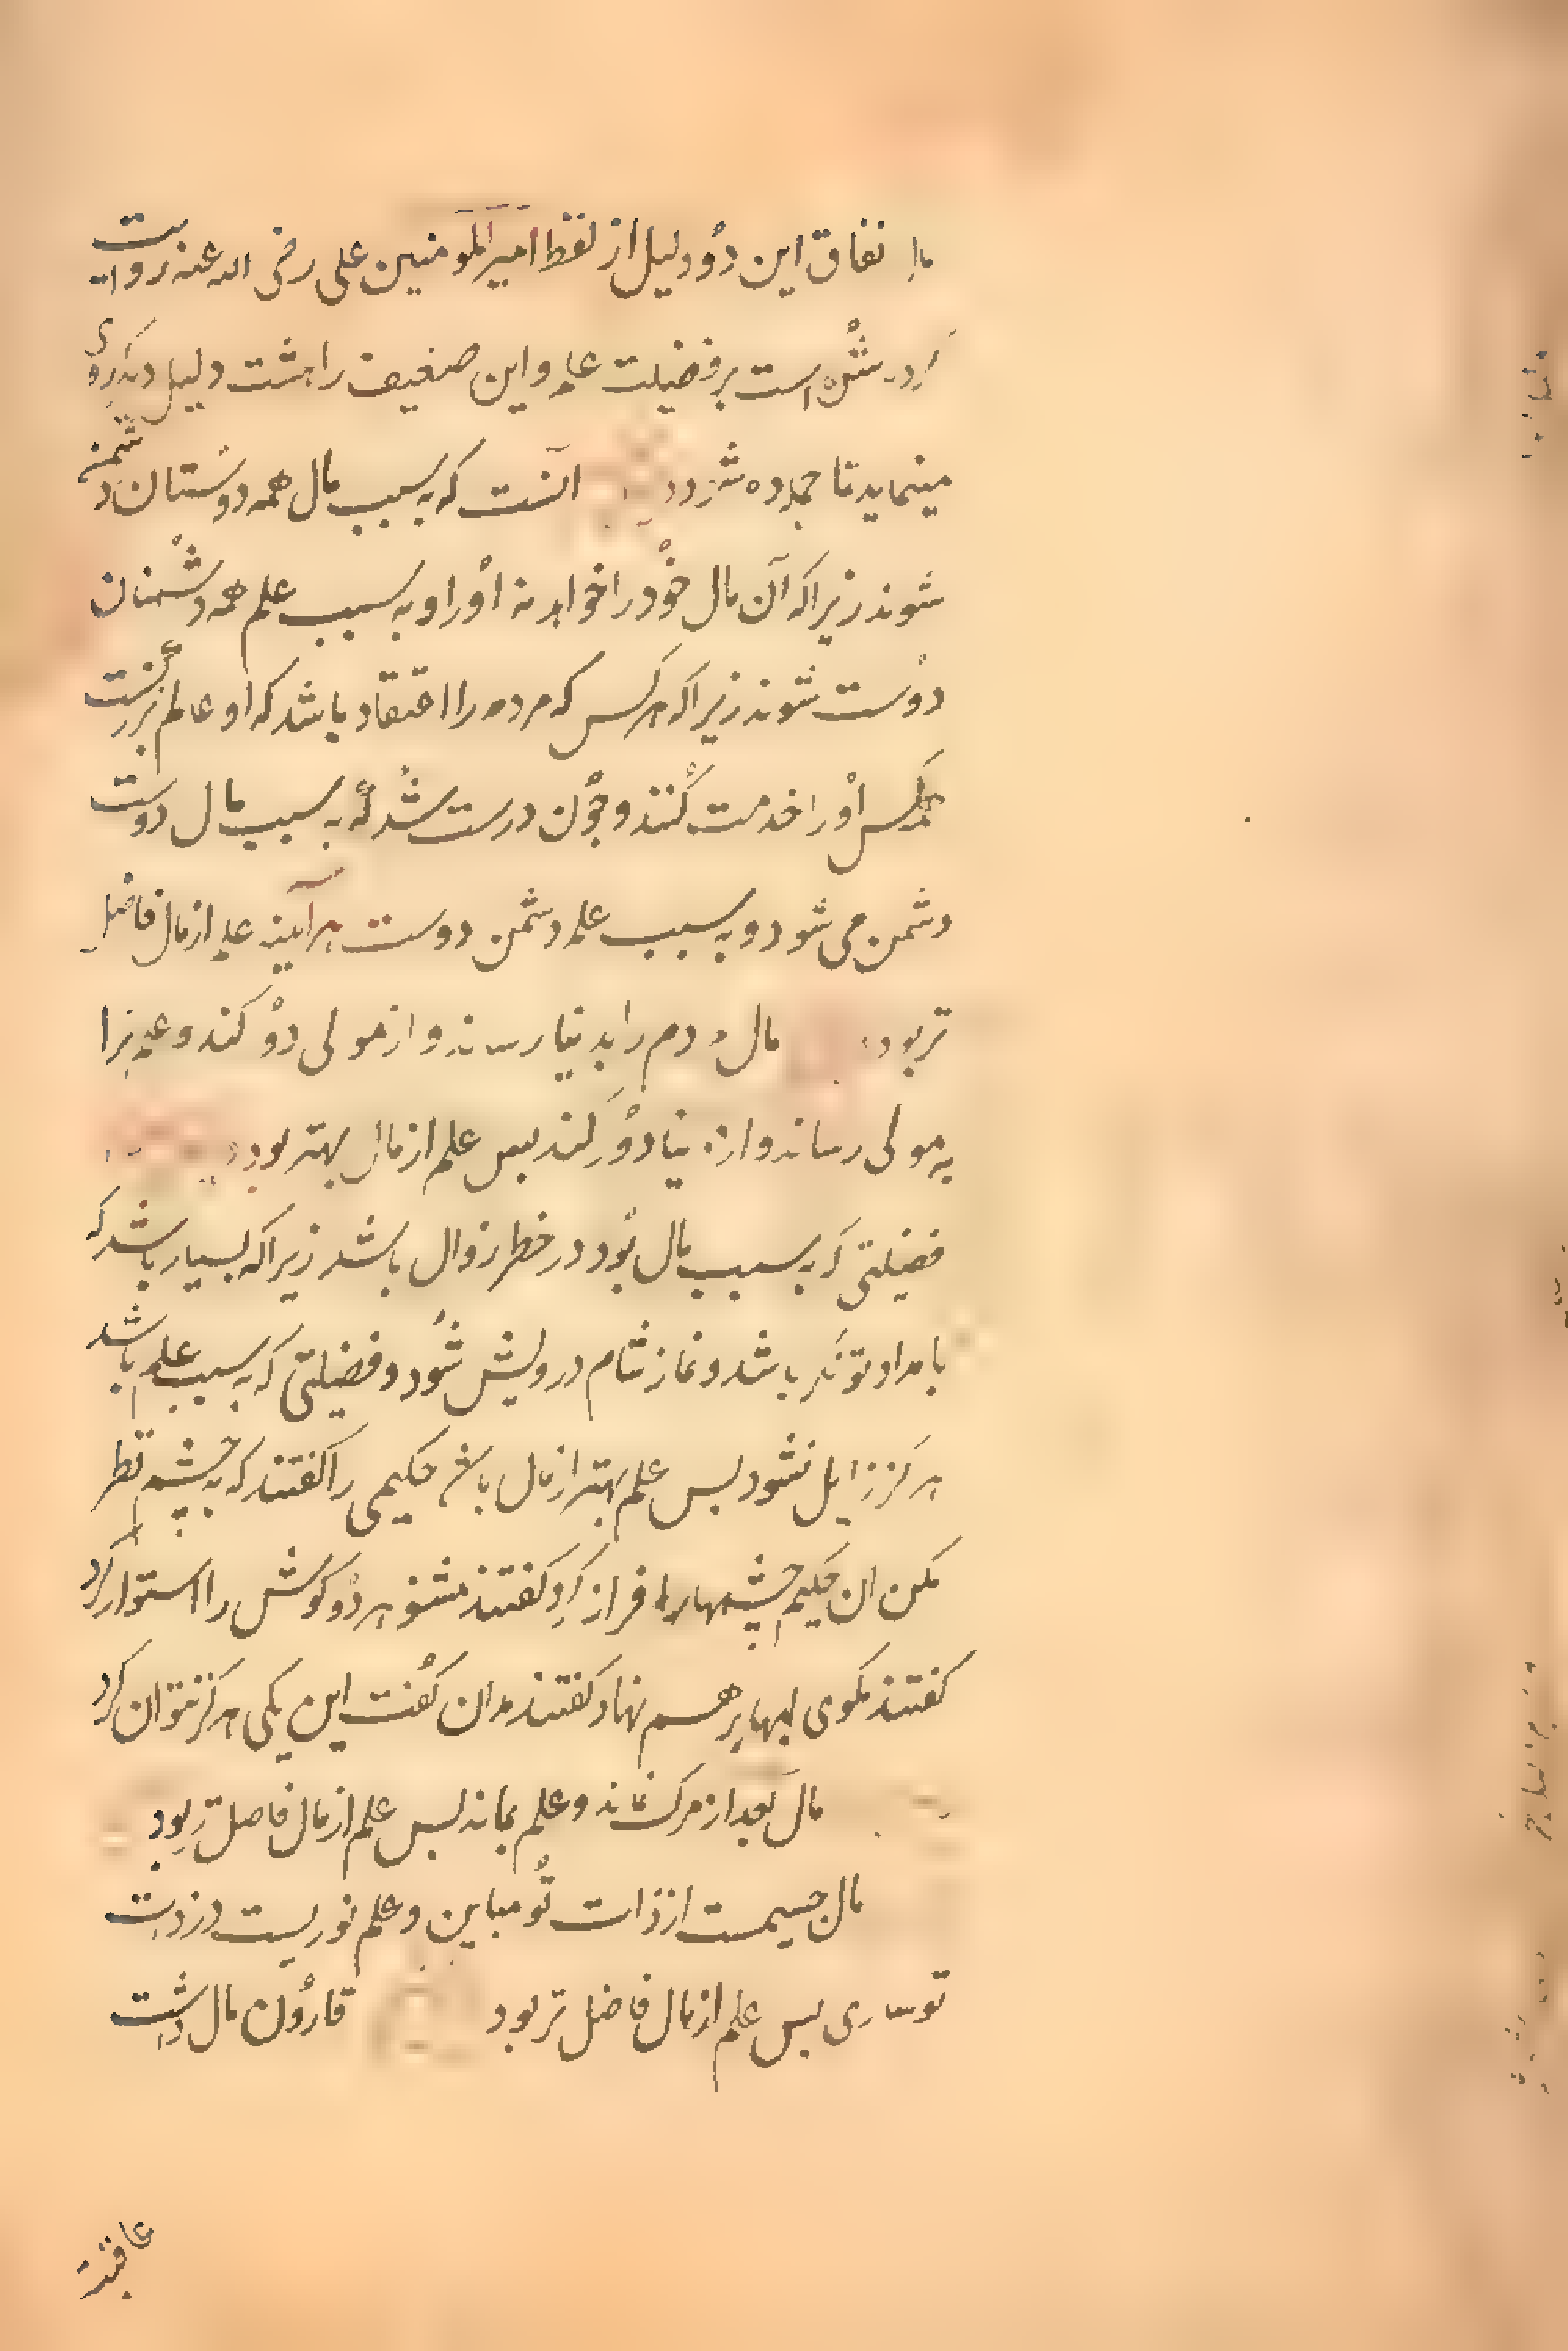 نفاق این دو دلیل از لفظ امیر المومنین علی رضی الله عنه روایت
شده است بر فضیلت علم و این ضعیف را هشت دلیل دیگر روی
مینماید تا جمله ده شود انست که به سبب مال همه دوستان دشمن
شوند زیرا که آن مال خود را خواهد نه او را و به سبب علم همه دشمنان
دوست شوند زیرا که هرکس که مردم را اعتقاد باشد که او عالم بزرگست
همه کس او را خدمت کنند و چون درست شد که به سبب مال دوست
دشمن می شود و به سبب علم دشمن دوست هر آینه علم از مال فاضل
تر بود مال مردم را بدنیا رساند و از مولی دور کند و علم
به مولی رساند و از دنیا دور کند بس علم از مال بهتر بود
فضیلتی که به سبب مال بود در خطر زوال باشد زیرا که بسیار باشد که
بامداد تونگر باشد و نماز شام درویش شود و فضیلتی که به سبب علم باشد
هرکز زایل نشود بس علم بهتر از مال باشد حکیمی را کفتند که به چشم نظر
مکن ان حکیم چشمها را فراز کرد کفتند مشنو هر دو کوش را استوار کرد
کفتند مکوی لبها بر هم نهاد کفتند مدان کفت این یکی هرکز نتوان کرد
مال بعد از مرک نماند و علم بماند بس علم از مال فاضل تر بود
مال جسیمست از ذات تو مباین و علم نوریست در ذات
تو ساری بس علم از مال فاضل تر بود قارون مال داشت
عاقبت